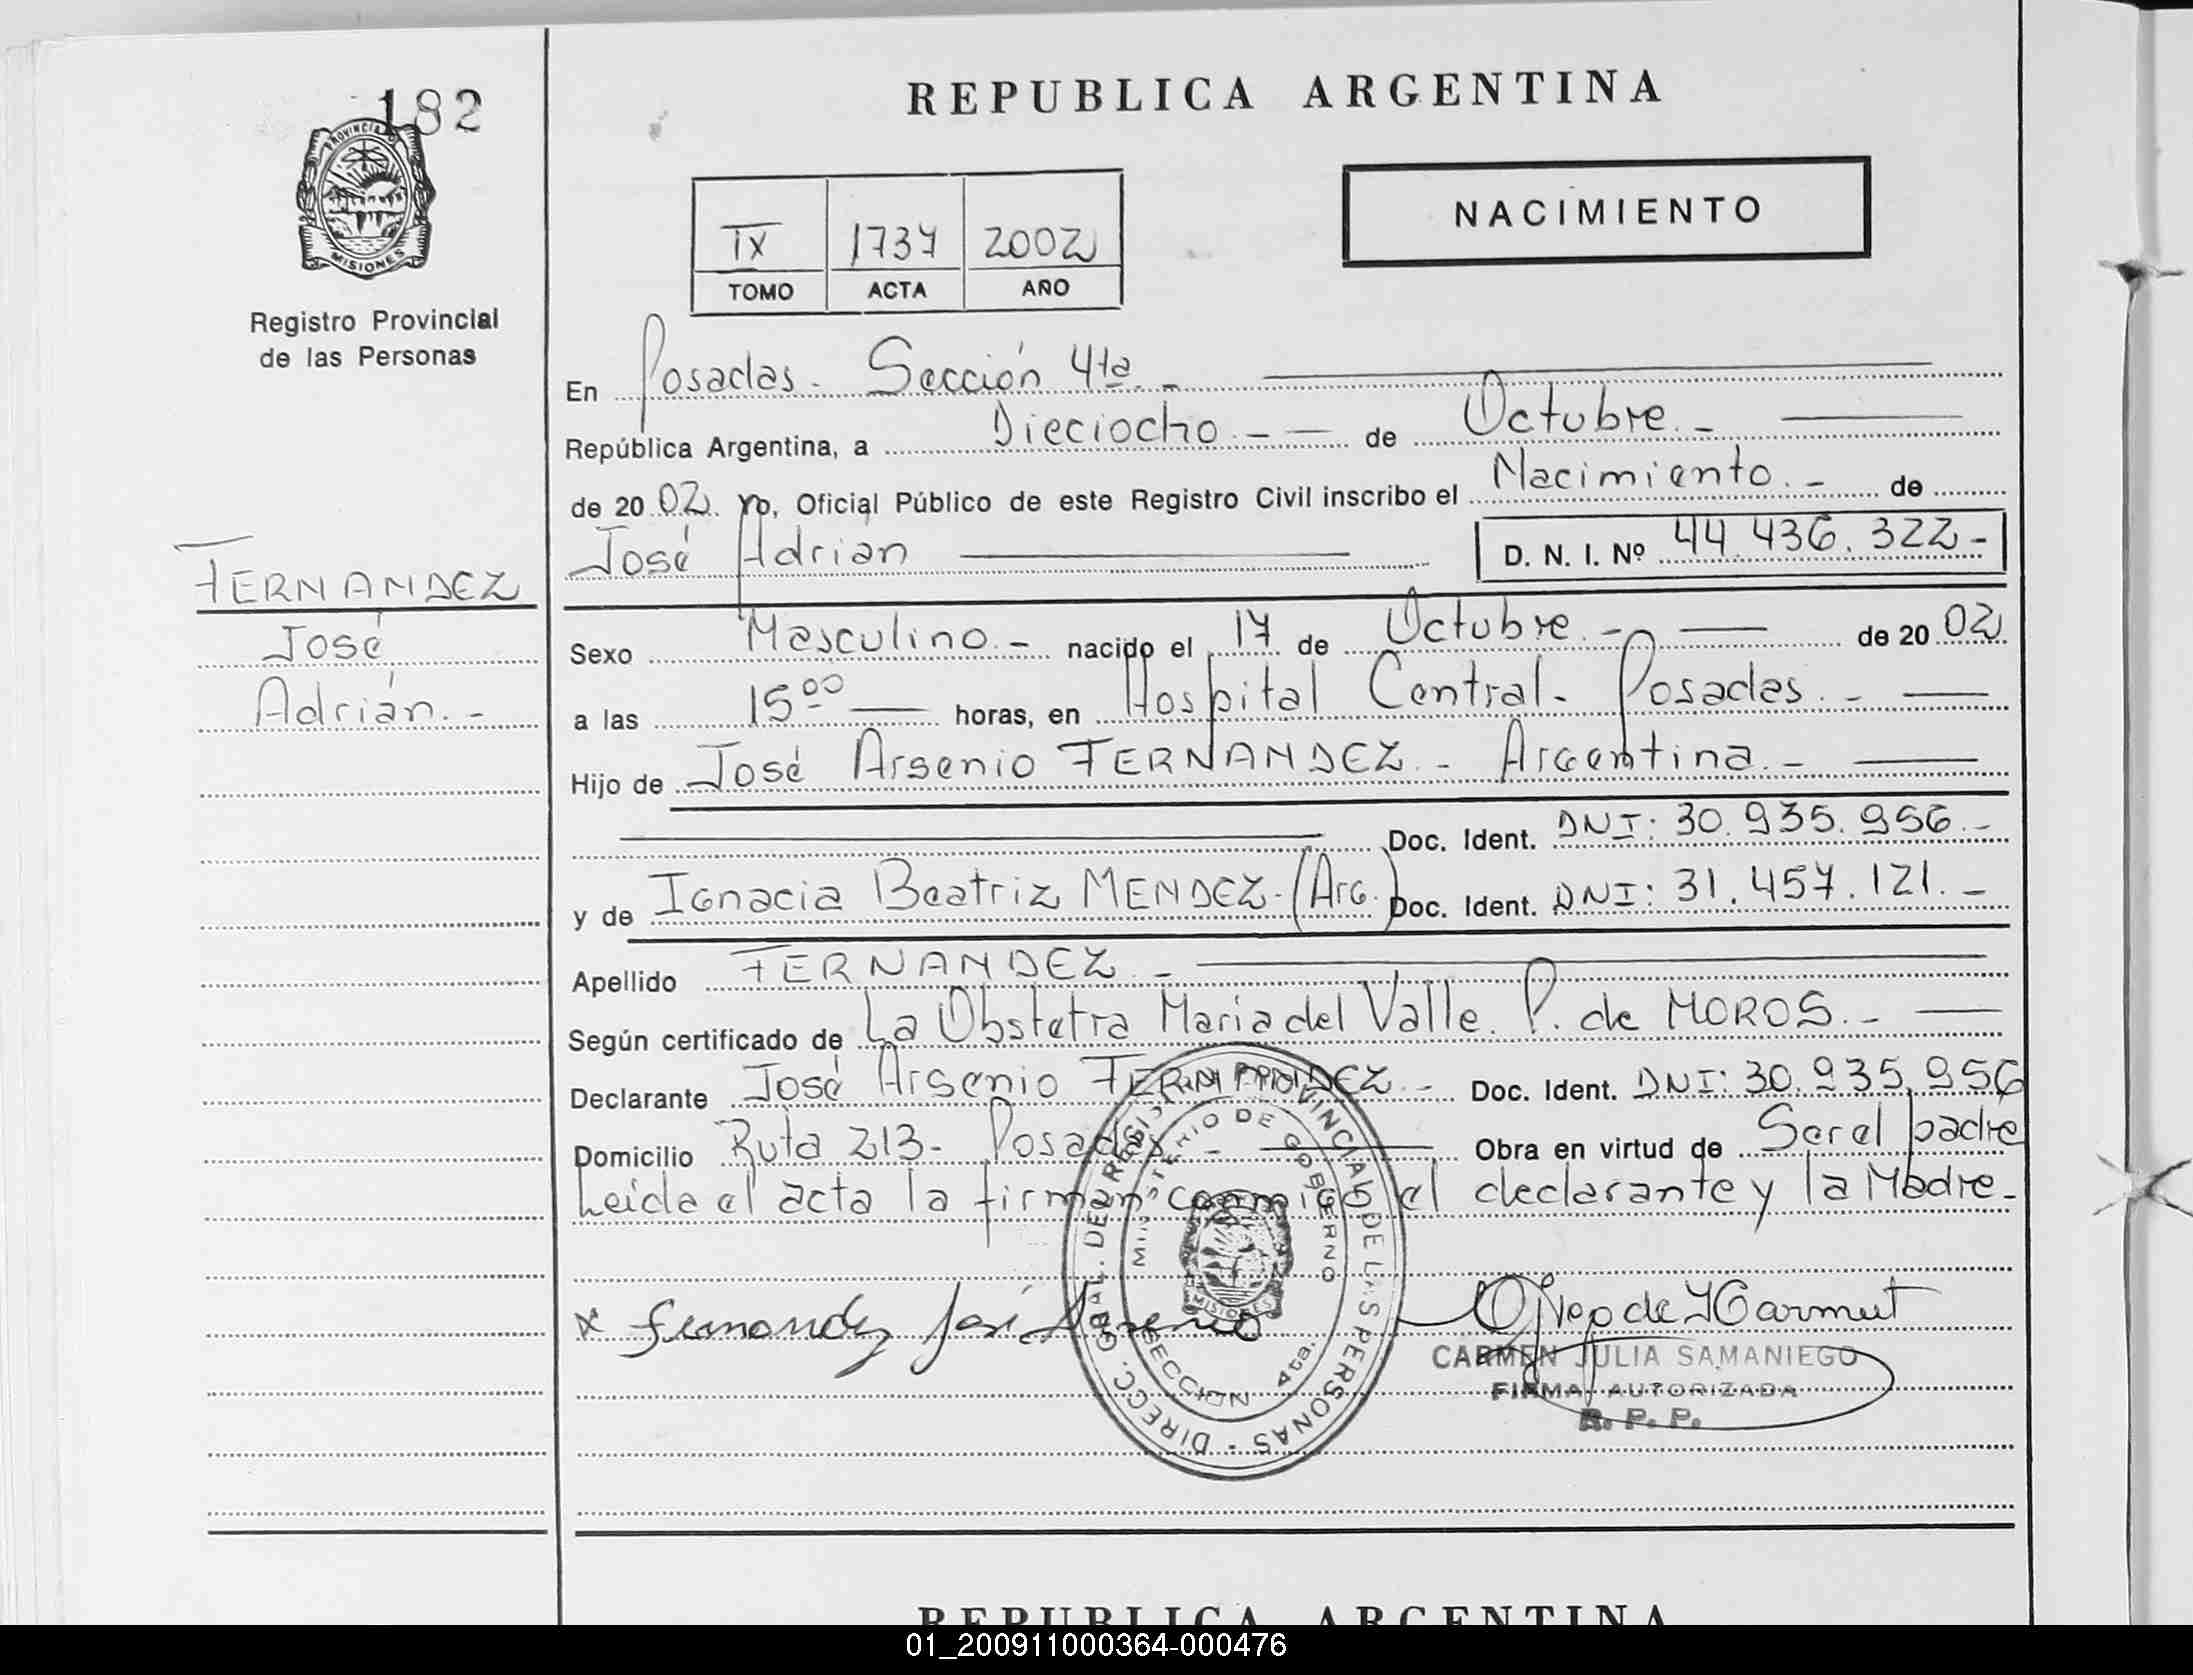 182
PROVINCIA DE
MISIONES
Registro Provincial
de las Personas
FERNANDEZ
José
Adrián.-
REPUBLICA ARGENTINA
NACIMIENTO
IX 1737 2002
TOMO ACTA AÑO
En Posadas - Sección 4ta.-
República Argentina, a Dieciocho.- - de Octubre.-
de 20 02 yo, Oficial Público de este Registro Civil inscribo el Nacimiento.- de
José Adrian D. N. I. Nº 44.436.322-
Sexo Masculino.- nacido el 17 de Octubre.- de 20 02
a las 15 00 horas, en Hospital Central- Posadas.-
Hijo de José Arsenio FERNANDEZ.- Argentina.-
Doc. Ident. DNI: 30.935.956.-
y de Ignacia Beatriz MENDEZ-(Arg.) Doc. Ident. DNI: 31.457.121.-
Apellido FERNANDEZ.-
Según certificado de La Obstetra Maria del Valle. P. de MOROS.-
Declarante José Arsenio FERNANDEZ.- Doc. Ident. DNI: 30.935.956
Domicilio Ruta 213- Posadas.- Obra en virtud de Ser el padre
Leida el acta la firman conmigo el declarante y la Madre.-
DIRECC. GRAL. DEL REGISTRO PROVINCIAL DE LAS PERSONAS -
MINISTERIO DE GOBIERNO
MISIONES
SECCION 4ta.
x Fernandez José Arsenio
CARMEN JULIA SAMANIEGO
FIRMA AUTORIZADA
R. P. P.
REPUBLICA ARGENTINA
01_200911000364-000476